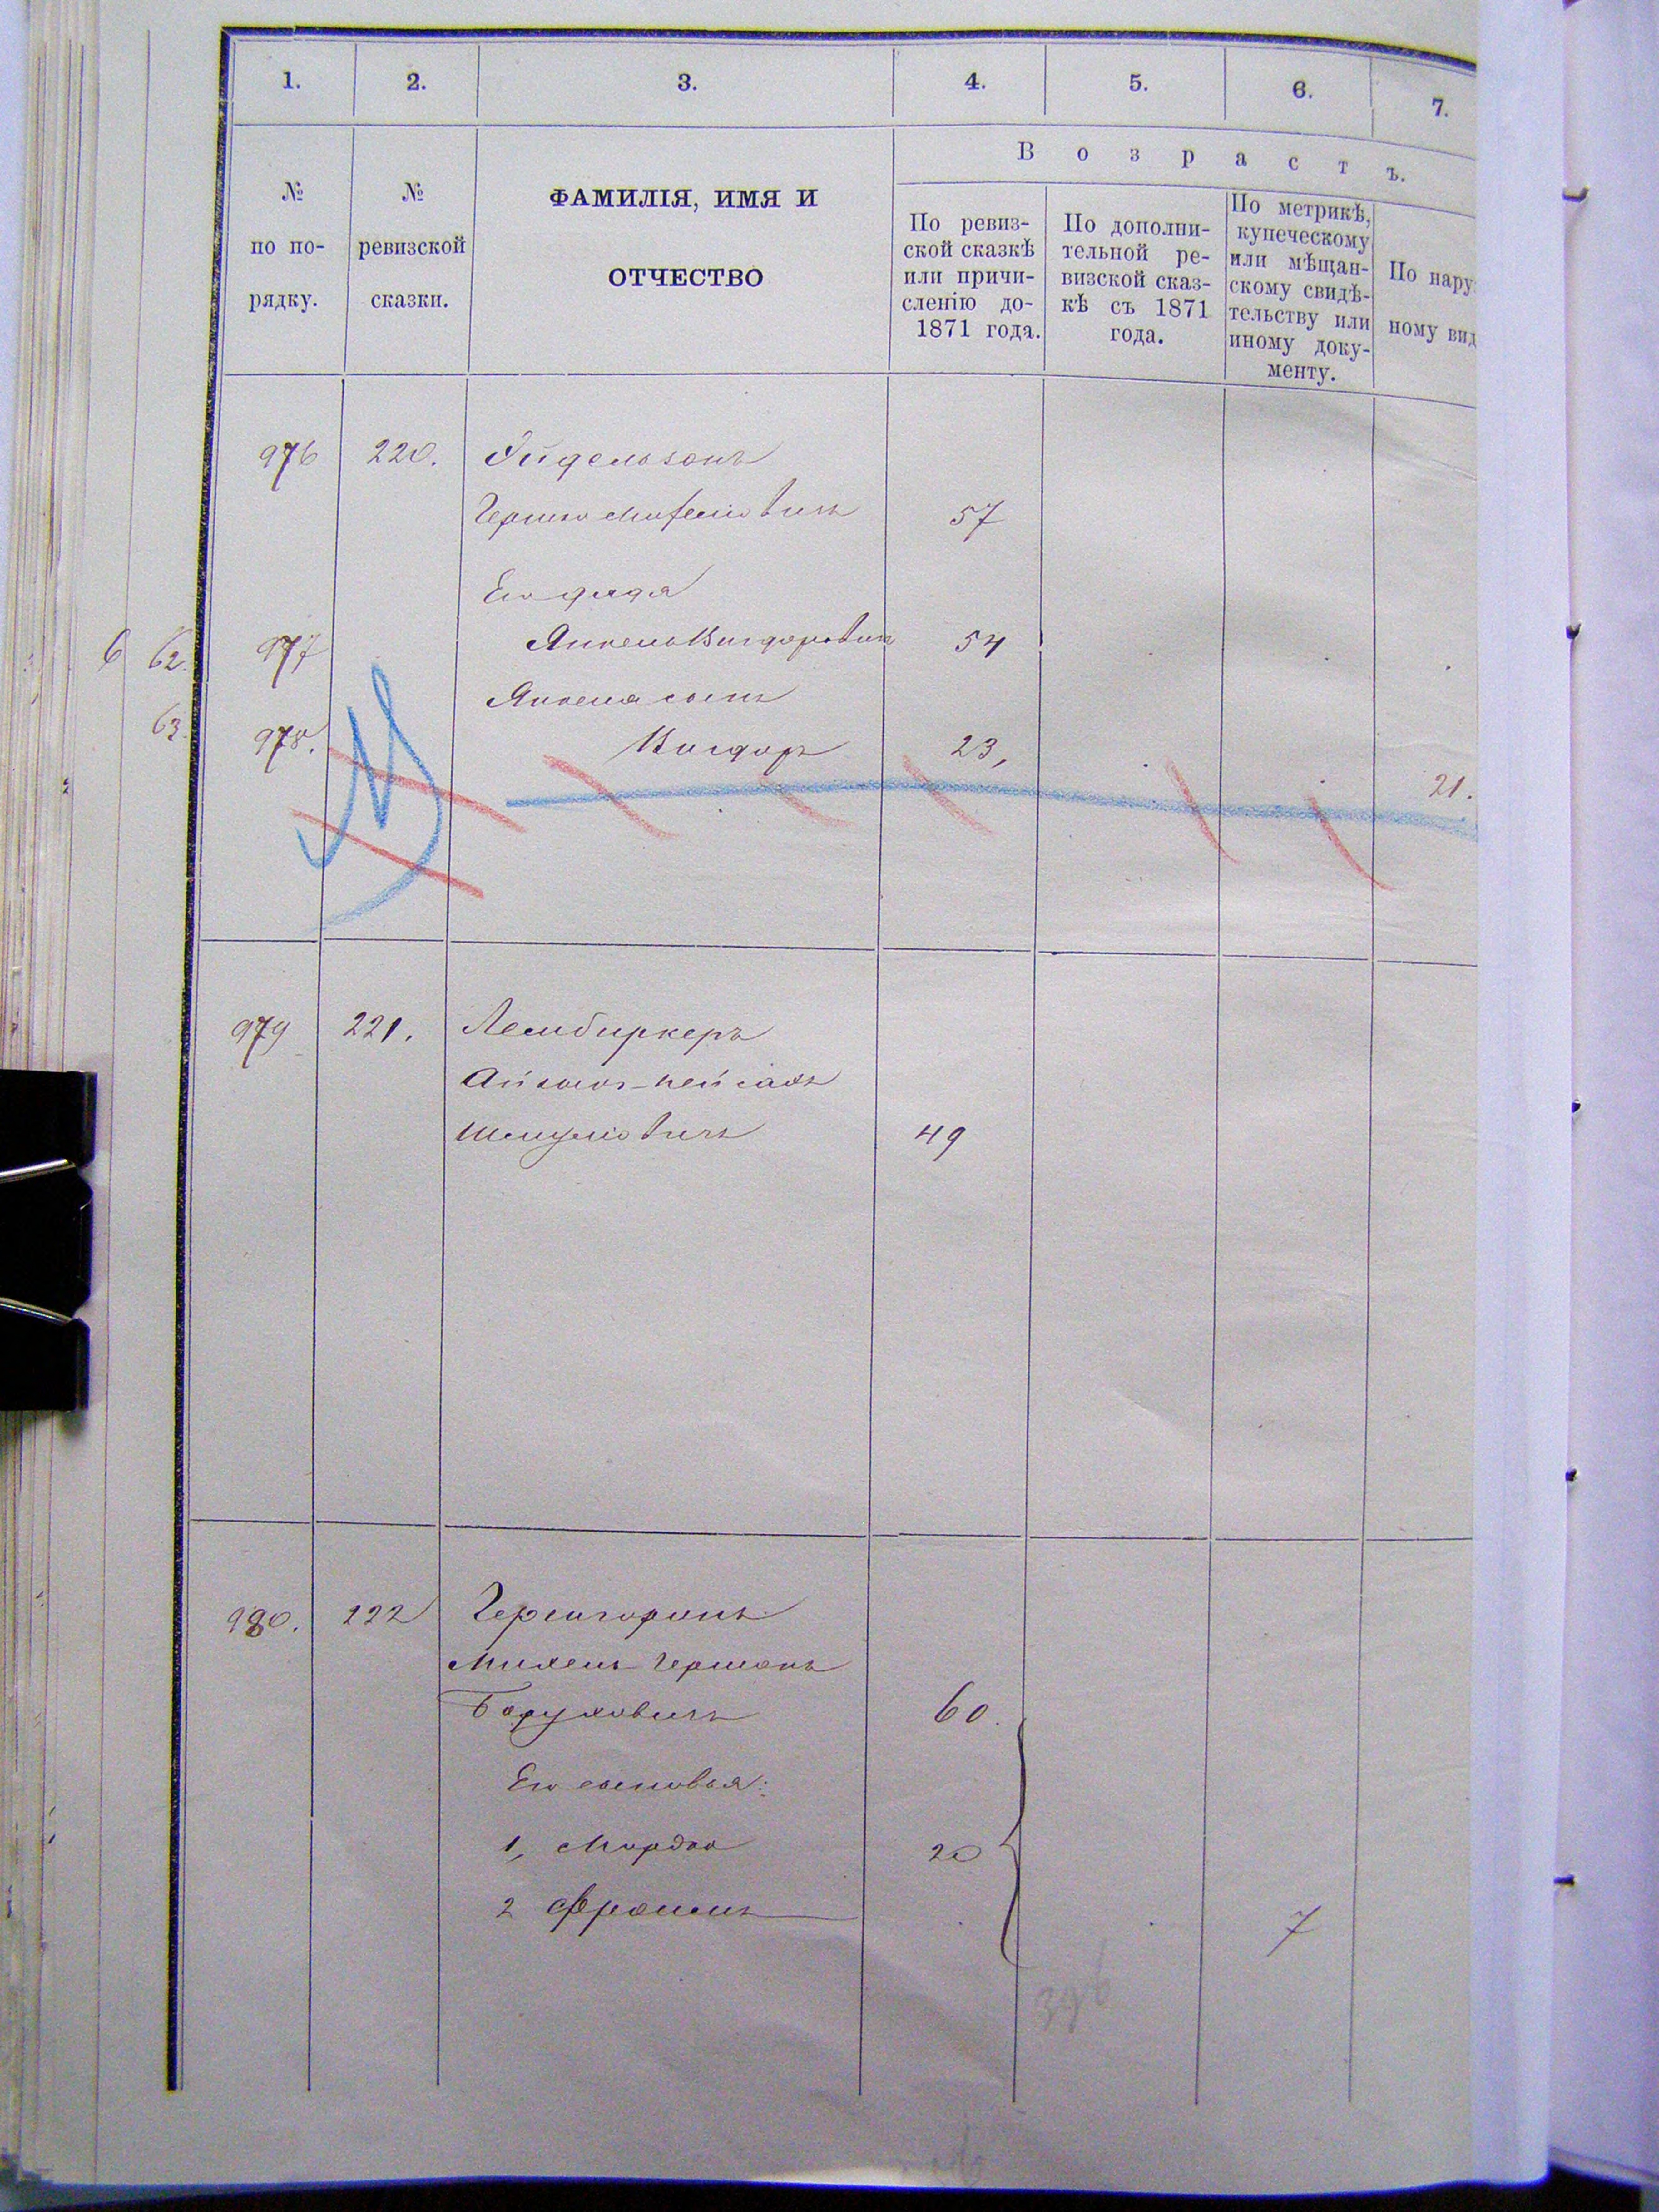 1. 2. 3. 4. 5. 6. 7.
В о з р а с т ъ.
№ по порядку.
№ ревизской сказки.
ФАМИЛІЯ, ИМЯ И
ОТЧЕСТВО
По ревиз-
ской сказкѣ
или причи-
сленію до-
1871 года.
По дополни-
тельной ре-
визской сказ-
кѣ съ 1871
года.
По метрикѣ,
купеческому
или мѣщан-
скому свидѣ-
тельству или
иному доку-
менту.
По нару
ному вид
976 220. Эйдельзонъ
57
Его дядя
6 62. 977 Янкель Вигдоровичъ 54
Янкеля сынъ
63. 978. Вигдоръ 23,
21.
979 221. Лембиркеръ
Айзикъ-Пейсахъ
Шмуловичъ 49
980. 222
Михель-Германъ
Боруховичъ 60.
Его сыновья:
1, Мордко 20
2 Фроимъ 7
396